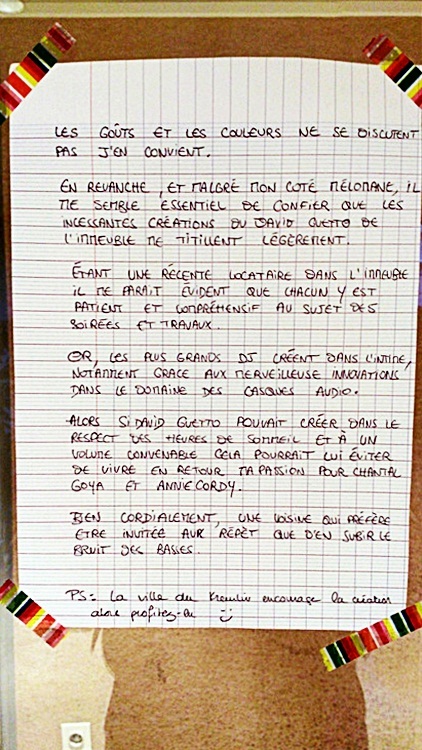 LES GOÛTS ET LES COULEURS NE SE DISCUTENT
PAS J'EN CONVIENT.
EN REVANCHE, ET MALGRÉ MON COTÉ MÉLOMANE, IL
ME SEMBLE ESSENTIEL DE CONFIER QUE LES
INCESSANTES CRÉATIONS DU DAVID GUETTO DE
L'IMMEUBLE ME TITILLENT LÉGÈREMENT.
ÉTANT UNE RÉCENTE LOCATAIRE DANS L'IMMEUBLE
IL ME PARAIT ÉVIDENT QUE CHACUN Y EST
PATIENT ET COMPRÉHENSIF AU SUJET DES
SOIRÉES ET TRAVAUX.
OR, LES PLUS GRANDS DJ CRÉENT DANS L'INTIME,
NOTAMMENT GRACE AUX MERVEILLEUSE INNOVATIONS
DANS LE DOMAINE DES CASQUES AUDIO.
ALORS SI DAVID GUETTO POUVAIT CRÉER DANS LE
RESPECT DES HEURES DE SOMMEIL ET À UN
VOLUME CONVENABLE CELA POURRAIT LUI ÉVITER
DE VIVRE EN RETOUR MA PASSION POUR CHANTAL
GOYA ET ANNIE CORDY.
BIEN CORDIALEMENT, UNE VOISINE QUI PRÉFÈRE
ETRE INVITÉE AUX RÉPÈT QUE D'EN SUBIR LE
BRUIT DES BASSES.
PS: La ville du Kremlin encourage la création
alors profitez-en :)